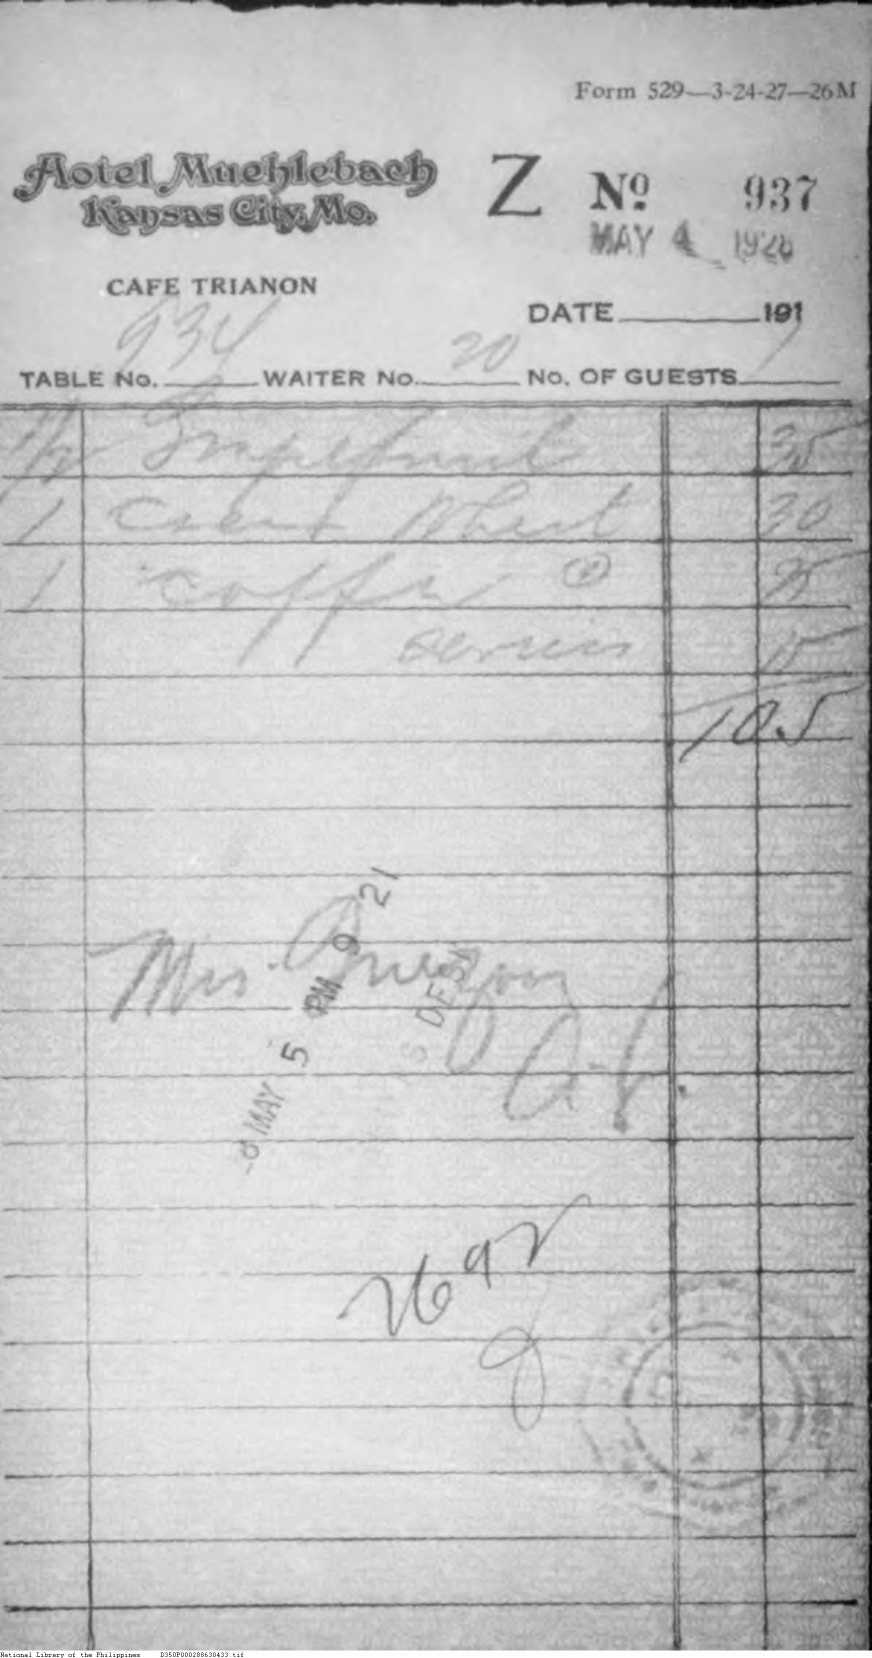 Form 529—3-24-27—26M
Hotel Muehlebach
Kansas City, Mo.
Z No 937
MAY 4 1928
CAFE TRIANON
DATE 191
TABLE No. 934 WAITER No. 20 No. OF GUESTS 1
1/2 Grapefruit 35
1 Cream Wheat 30
1 Coffee 25
service 15
105
MAY 5 PM 9 21
Mrs. Quezon
2692
National Library of the Philippines D350P000288630433.tif